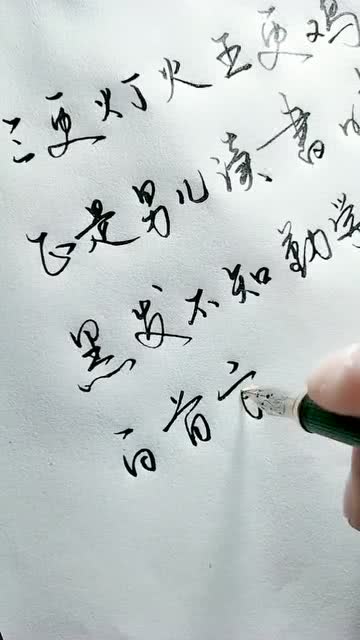 三更灯火五更鸡
正是男儿读书时
黑发不知勤学
白首方